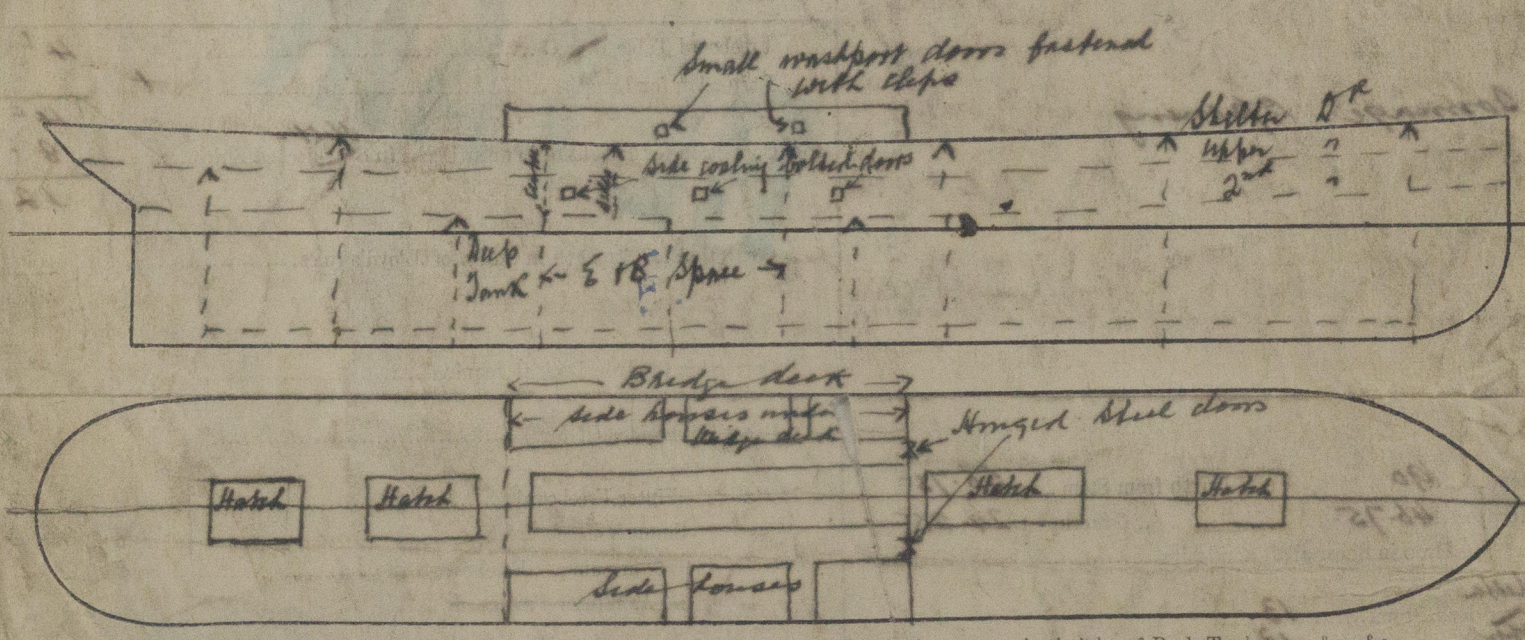 Small washport doors fastened
with clips
Shelter Dk
upper "
2nd "
side coaling bolted doors
Deep
Tank
E + B Space
Bridge deck
side houses under
Bridge deck
Hinged Steel doors
Hatch
Hatch
Hatch
Hatch
Side houses